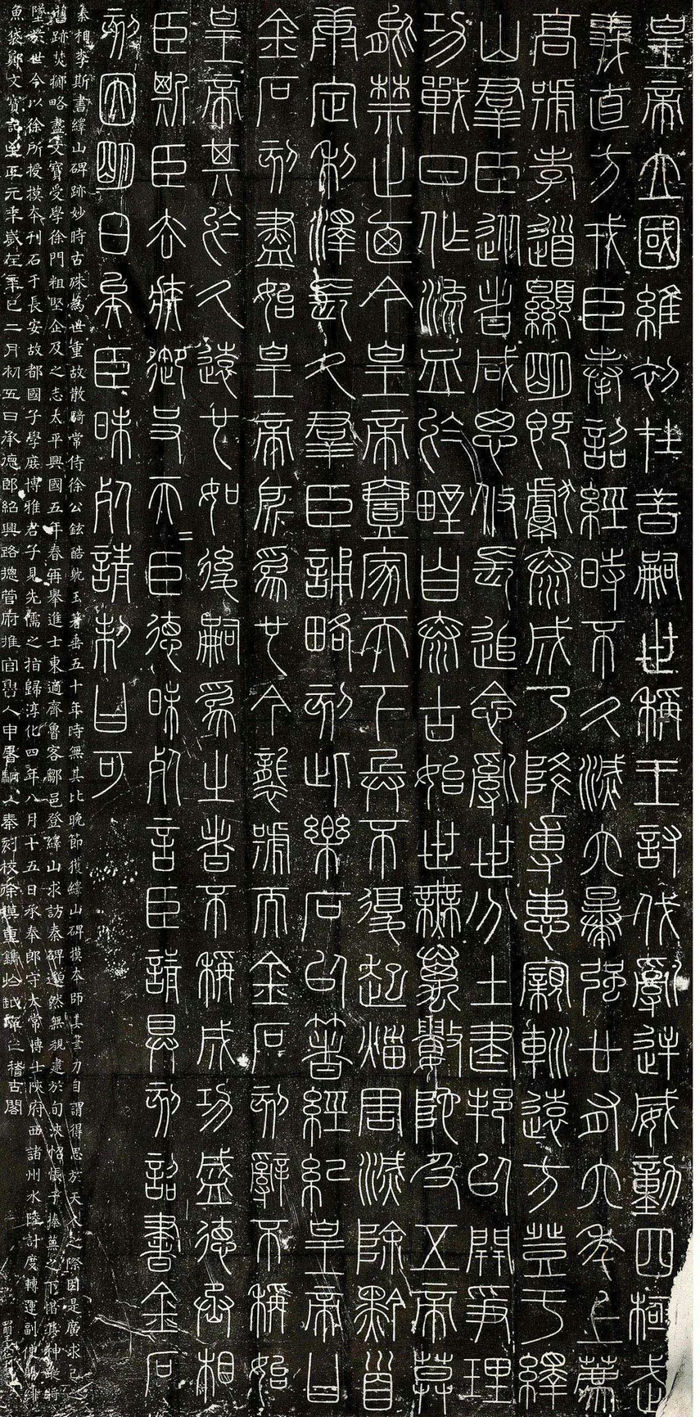 皇帝立國維初在昔嗣世稱王討伐亂逆威動四極武
義直方戎臣奉詔經時不久滅六暴強廿有六年上薦
高號孝道顯明既獻泰成乃降尃惠寴巡遠方登于繹
山羣臣從者咸思攸長追念亂世分土建邦以開爭理
功戰日作流血於野自泰古始世無萬數陀及五帝莫
能禁止廼今皇帝壹家天下兵不復起災害滅除黔首
康定利澤長久羣臣誦略刻此樂石以著經紀皇帝曰
金石刻盡始皇帝所爲也今襲號而金石刻辭不稱始
皇帝其於久遠也如後嗣爲之者不稱成功盛德丞相
臣斯臣去疾御史夫=臣德昧死言臣請具刻詔書金石
刻因明白矣臣昧死請制曰可
秦相李斯書繹山碑跡妙時古殊為世重故散騎常侍徐公鉉酷躭玉箸垂五十年時無其比晚節獲繹山碑模本師其筆力自謂得思於天人之際因是廣求己之
舊跡焚擲略盡文寶受學徐門粗堅企及之志太平興國五年春再舉進士東適齊魯客鄒邑登繹山求訪秦碑邈然無覩逮於旬浹怊悵于榛蕪之下惜其神蹤將
墜於世今以徐所授模本刊石于長安故都國子學庶博雅君子見先儒之指歸淳化四年八月十五日承奉郎守太常博士陝府西諸州水陸計度轉運副使賜緋
魚袋鄭文寶記至正元年歲在辛巳二月初五日承德郎紹興路總管府推官魯人申屠駉以秦刻校徐模重鐫於越庠之稽古閣